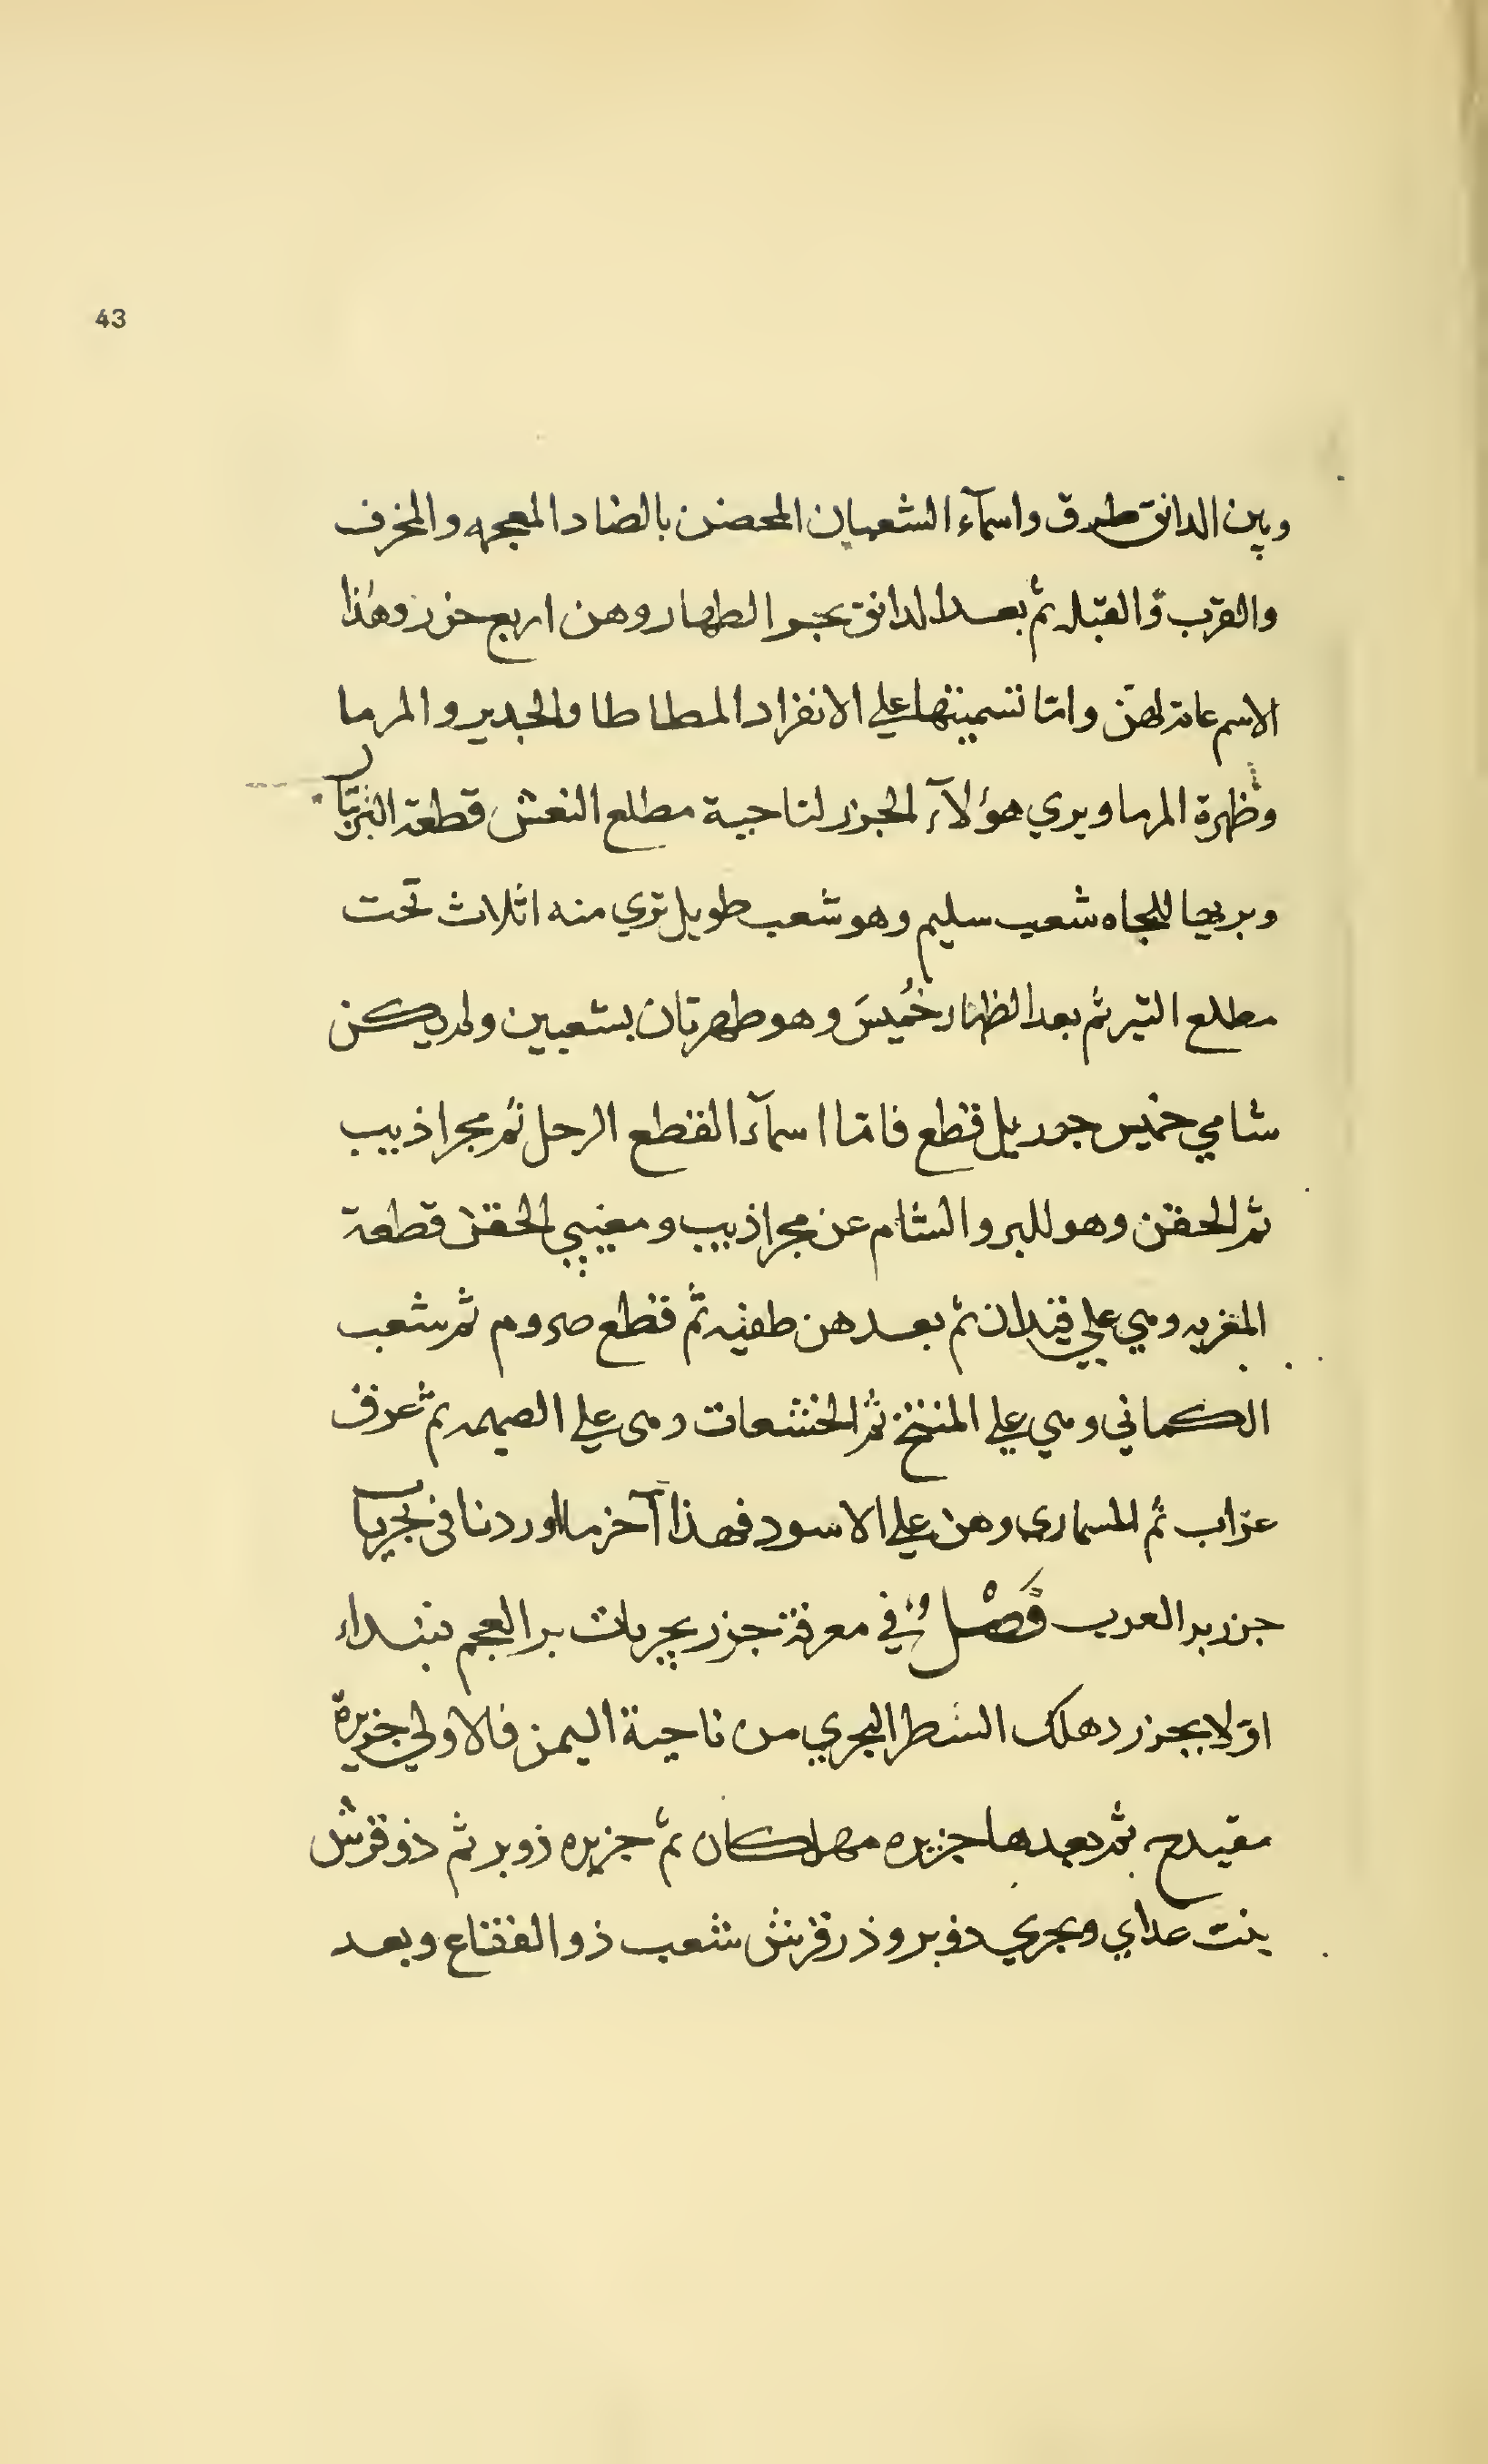 43
وبين الدانق طرق واسمآء الشعبان المحضن بالضاد المعجمه والمخرف
والقرب والقبله ثم بعد الدانق بحر الظهار وهن اربع جزر وهذا
الاسم عامة لهنّ وامّا تسميتها علي الانفراد المطاطا والجدير والمرما
وظهرة المرما ويري هؤلآء الجزر لناحية مطلع النعش قطعة الثريّا
وبريحا للجاه شعب سليم وهو شعب طويل تري منه اثلاث تحت
مطلع التير ثم بعد الظهار خُميسَ وهو ظهرتان بشعبين ولم يكن
شامي خميس جوربل قطع فامّا اسمآء القطع الرحل ثم مجرا ذبيب
ثم الحقن وهو للبر والشام عن مجرا ذبيب ومغيبي الحقن قطعة
المغربه وهي علي قندان ثم بعدهن طفيه ثم قطع صروم ثم شعب
الكماني وهي علي المنتخ ثم الخشعات وهى علي الصيمه ثم عرف
عزاب ثم المسماري وهن علي الاسود فهذا آخر ما اوردنا فى بحريات
جزر بر العرب فَصْلٌ في معرفة جزر بحريات بر العجم نبتداء
اوّلا بجزر دهلك الشطر البحري من ناحية اليمن فالاولي جزيرة
مقيدح ثم بعدها جزيره مهلكان ثم جزيره ذوبر ثم ذو قرش
بنت عداي وبحري ذوبر وذو قرش شعب ذو الفقاع وبعد